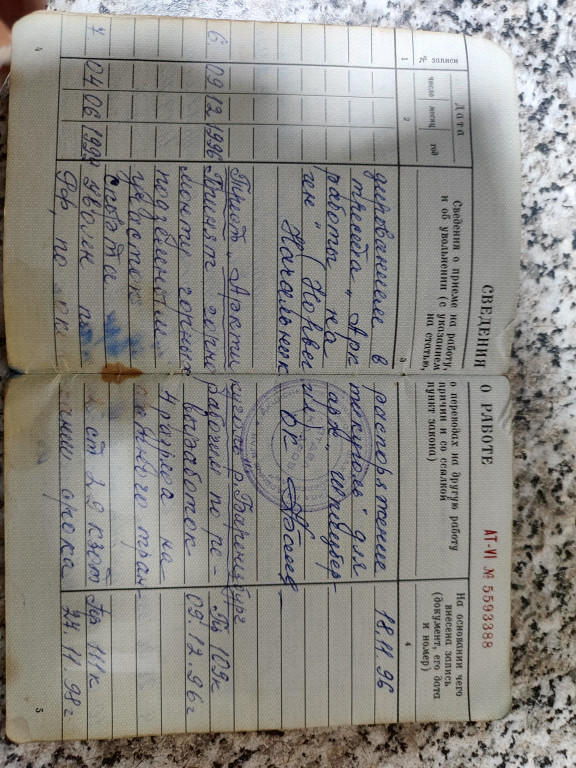 СВЕДЕНИЯ О РАБОТЕ
АТ-VI № 5593388
№ записи
Дата
число
месяц
год
Сведения о приеме на работу, о переводах на другую работу
и об увольнении (с указанием причин и со ссылкой
на статью, пункт закона)
На основании чего
внесена запись
(документ, его дата
и номер)
1 2 3 4
дированием в распоряжение 18.11.96
треста „Арктикуголь" для
работы на арх. „Шпицбер-
ген" (Норвегия)
Начальник
Трест „Арктикуголь" р. Баренцбург
6 09 12 1996 Принят горнорабочим по ре- Пр 109к
монту горных выработок 09.12.96г
подземным 4 разряда на
участок
7 04 06 1998 Уволен по ст 29 КЗоТ Пр 111к
РФ, по окончании срока 27.11.98г
4
5